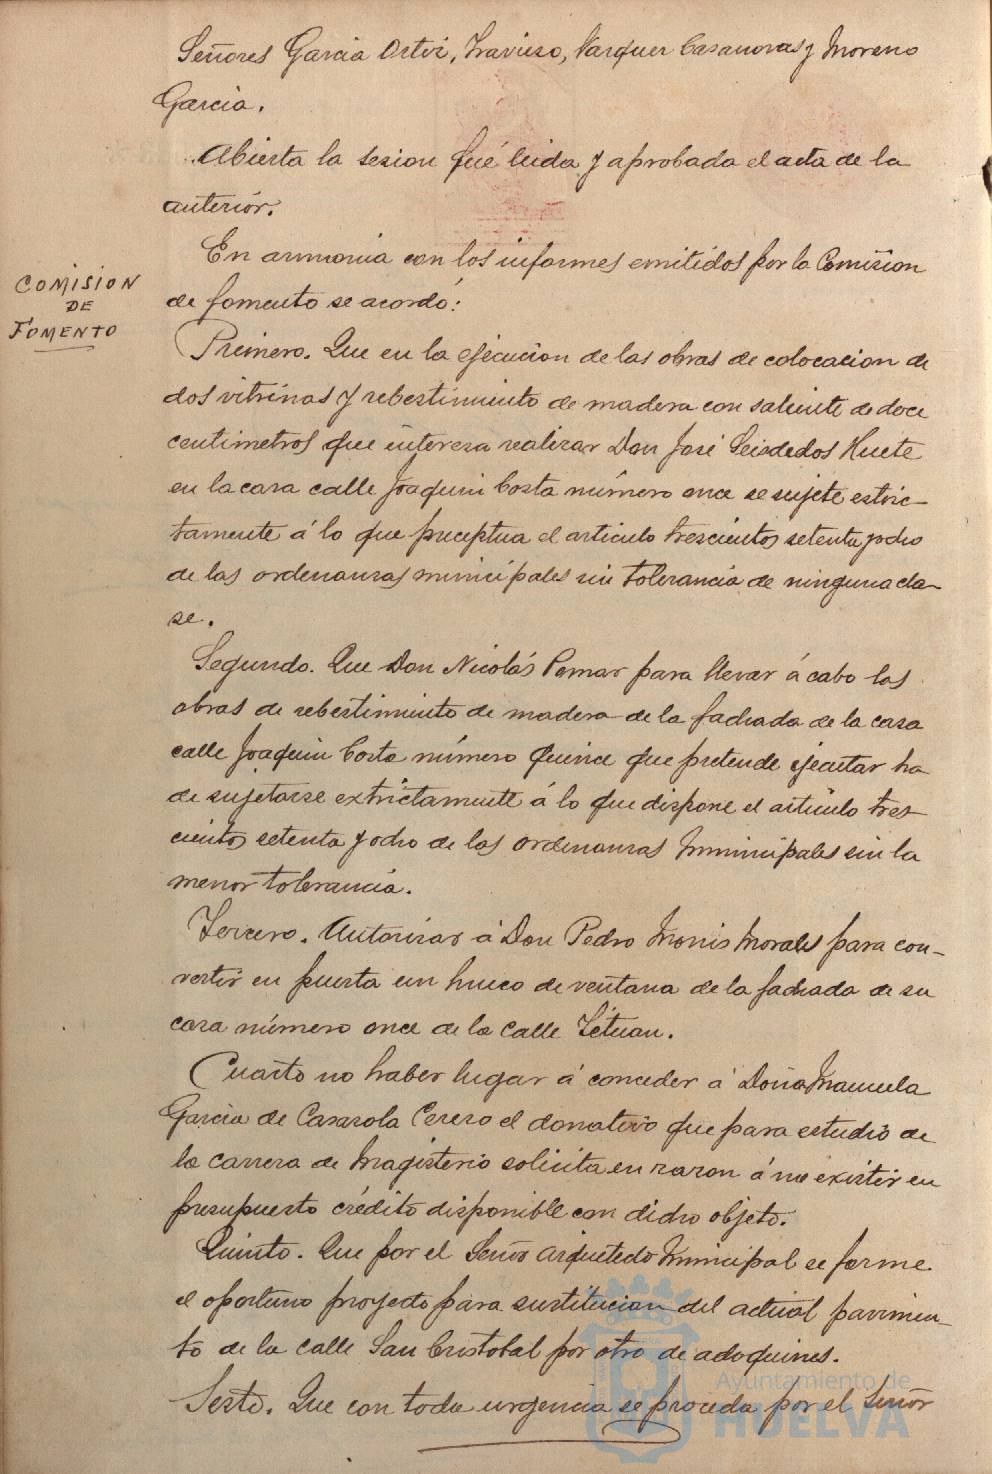 Señores Garcia Ortiz, Travieso, Vazquez Casanovas y Moreno
Garcia.
Abierta la sesion fué leida y aprobada el acta de la
anterior.
En armonia con los informes emitidos por la Comision
de fomento se acordó:
COMISION
DE
FOMENTO
Primero. Que en la ejecucion de las obras de colocacion de
dos vitrinas y rebestimiento de madera con saliente de doce
centimetros que interesa realizar Don José Seisdedos Huete
en la casa calle Joaquin Costa número once se sujete estric-
tamente á lo que preceptua el articulo trescientos setenta y ocho
de las ordenanzas municipales sin tolerancia de ninguna cla-
se.
Segundo. Que Don Nicolás Pomar para llevar á cabo las
obras de rebestimiento de madera de la fachada de la casa
calle Joaquin Costa número Quince que pretende ejecutar ha
de sujetarse extrictamente á lo que dispone el articulo tres-
cientos setenta y ocho de las ordenanzas Municipales sin la
menor tolerancia.
Tercero. Autorizar á Don Pedro Monis Morales para con-
vertir en puerta un hueco de ventana de la fachada de su
casa número once de la calle Tétuan.
Cuarto no haber lugar á conceder á Doña Manuela
Garcia de Casasola Cerezo el donativo que para estudio de
la carrera de Magisterio solicita en razon á no existir en
presupuesto crédito disponible con dicho objeto.
Quinto. Que por el Señor Arquitecto Municipal se forme
el oportuno proyecto para sustitucion del actual pavimen-
to de la calle San Cristobal por otro de adoquines.
Sesto. Que con toda urgencia se proceda por el Señor
Ayuntamiento de
HUELVA